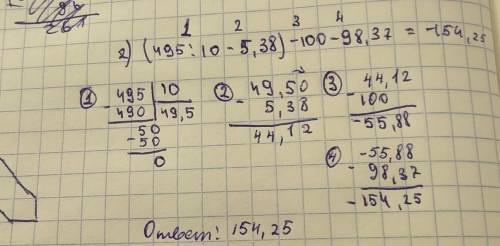 261
1 2 3 4
2) (495:10-5,38)-100-98,37=-154,25
① 495 | 10
- 490 | 49,5
50
- 50
0
② 49,50
- 5,38
44,12
③ 44,12
- 100
-55,88
④ -55,88
- 98,37
-154,25
Ответ: 154,25